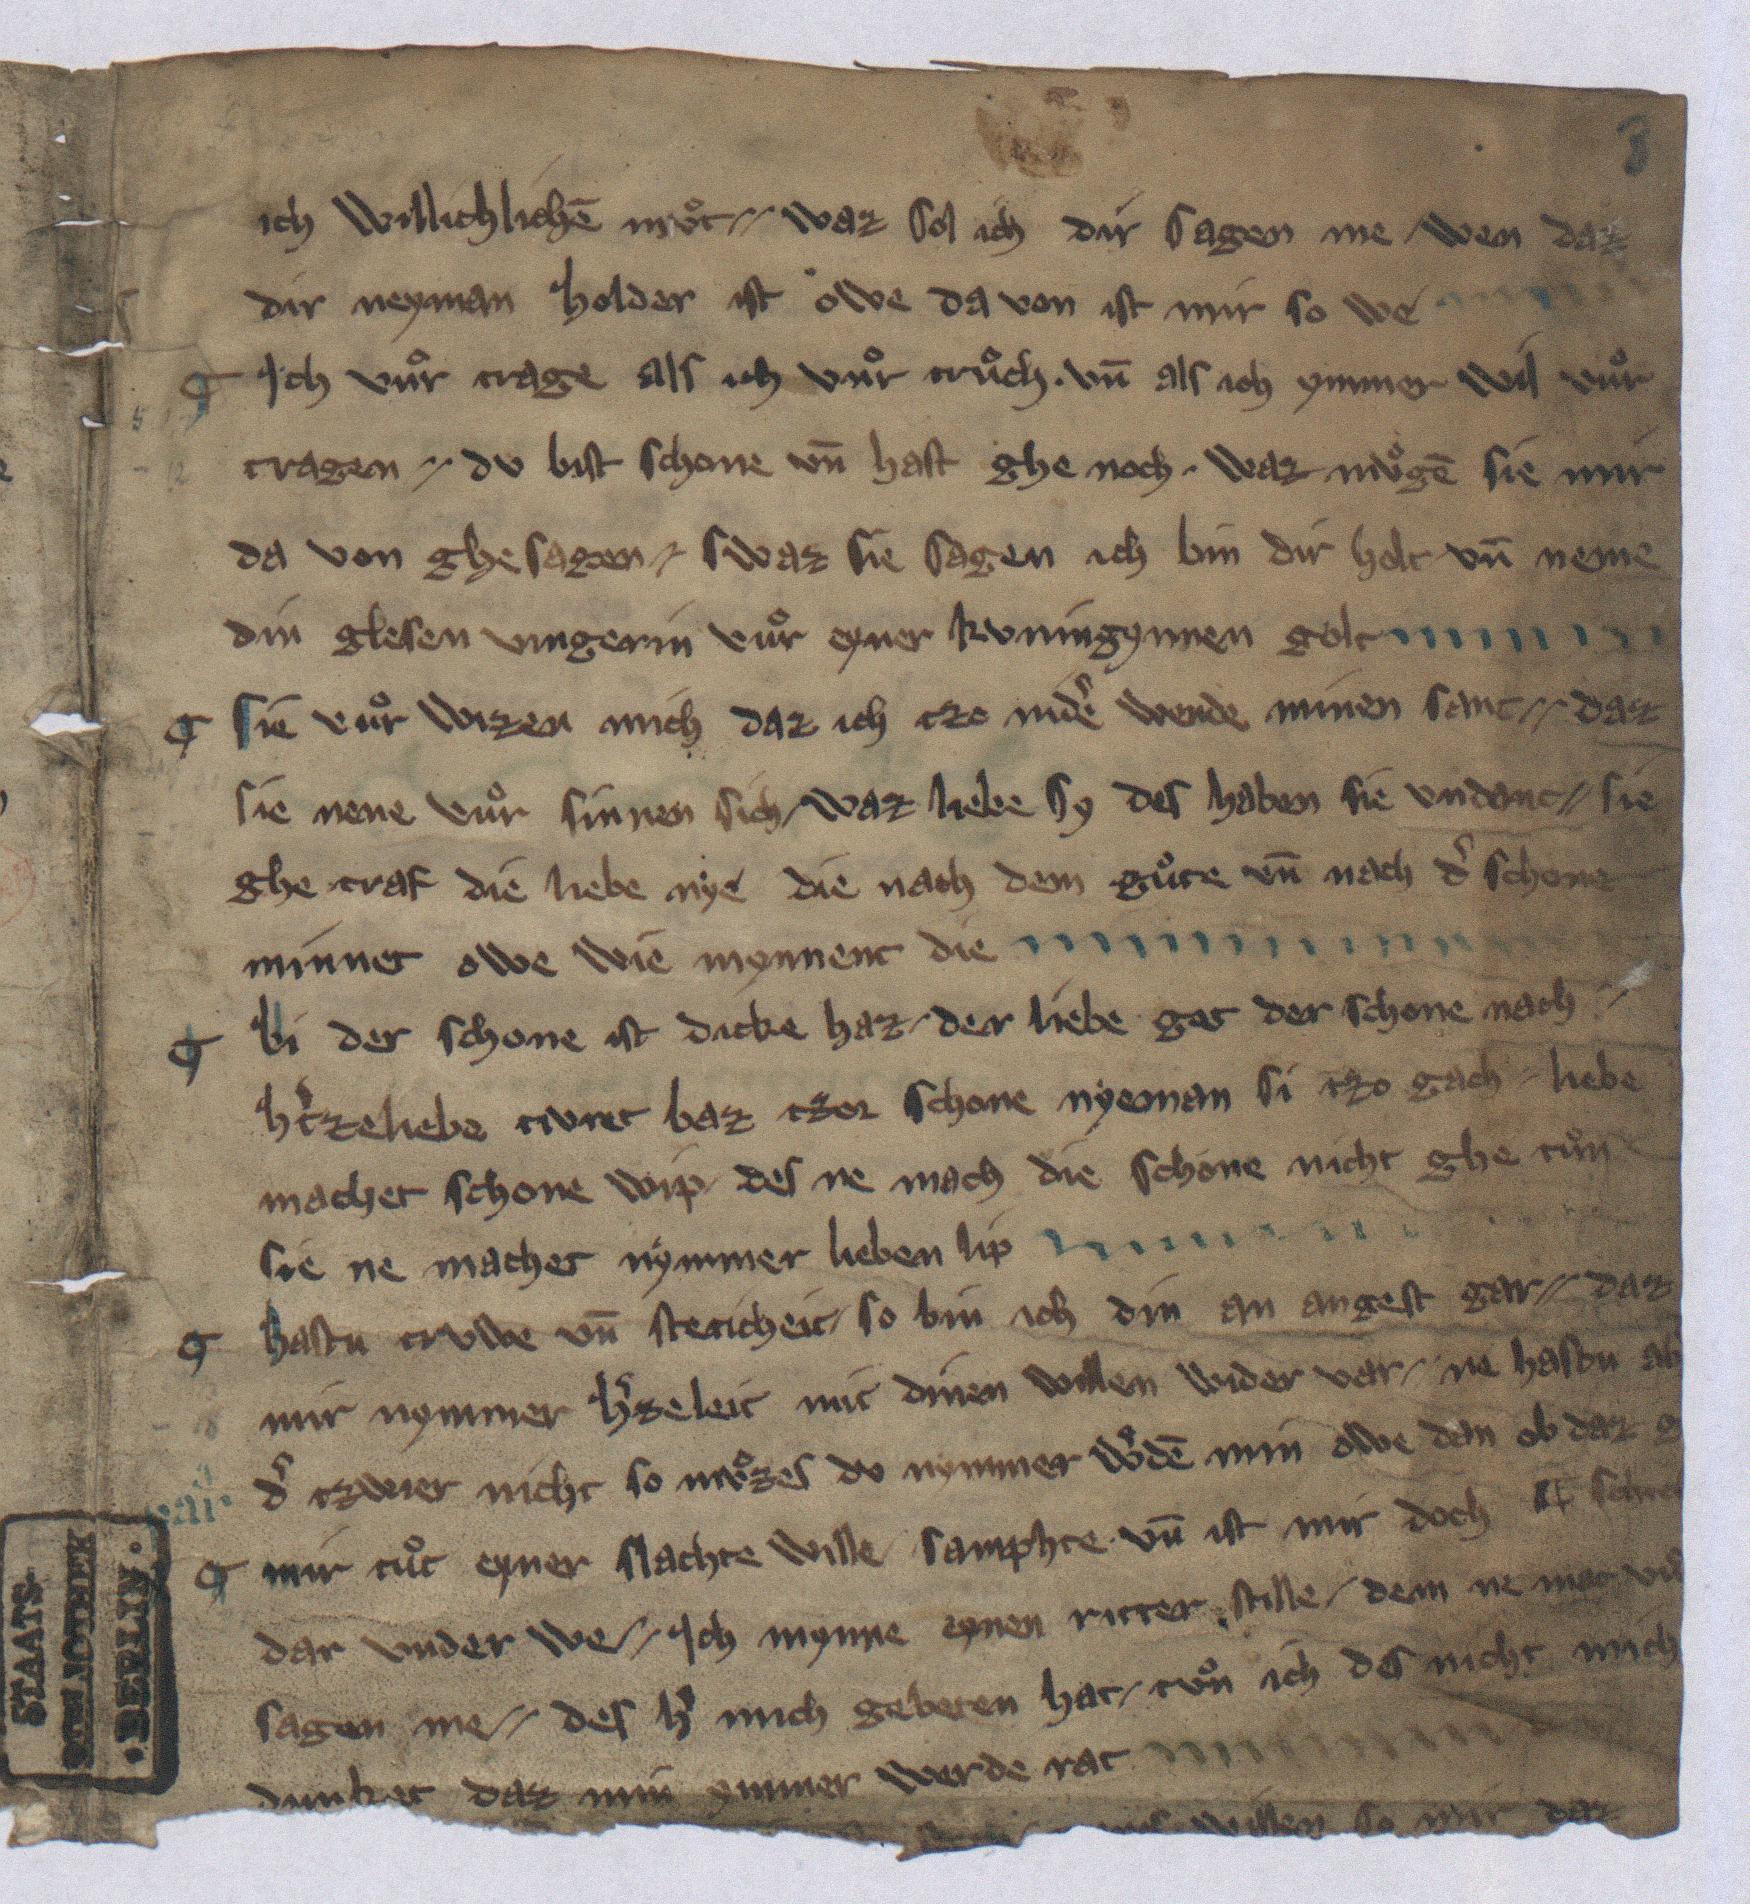 3
ich willichlichē mv̊t // waz sol ich dir sagen me / wen daz
dir neyman holder ist owe da von ist mir so we
¶ Ich vůr trage als ich vůr trůch . vn̄ als ich ymmer wil vůr
tragen // dv bist schone vn̄ hast ghe noch . waz mv̊gē sie mir
da von ghe sagen / swaz sie sagen ich bin dir holt vn̄ neme
din glesen vingerin vůr eyner kvningynnen golt
¶ sie vůr wizen mich daz ich tzo nidē wende minen sanc // daz
sie nene vůr sinnen sich / waz liebe sy des haben sie vndanc // sie
ghe traf die liebe nye die nach dem gůte vn̄ nach d' schone
minnet owe wie mynnent die
¶ bi der schone ist dicke haz / der liebe get der schone nach //
h'tzeliebe tvret baz tzor schone nyeman si tzo gach / liebe
machet schone wip / des ne mach die schone nicht ghe tůn
sie ne machet nymmer lieben lip
¶ hastu trvwe vn̄ steticheit / so bin ich din an angest gar // daz
mir nymmer h'zeleit mit dinen willen wider var / ne hastu ab
d' tzwier nicht so mv̊zes dv nymmer w'dē min owe dan ob daz g
¶ mir tůt eyner slachte wille samphte . vn̄ ist mir doch
dar vnder we // Ich mynne eynen ritter . stille / dem ne mac
sagen me // des h' mich gebeten hat / tv̊n ich des nicht mich
dunket daz min ymmer werde rat
willen so mir daz
STAATS-
BIBLIOTHEK
· BERLIN ·